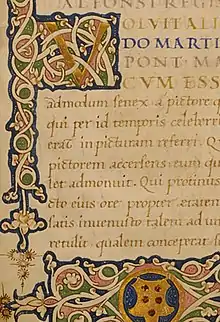 ALFONSI REGI
OLVIT ALI
DO MARTI
PONT MA
CVM ESS
admodum senex a pictore
qui per id temporis celeberri
erat in picturam referri. Q
pictorem accersens: eum qu
let admonuit. Qui protinus
cto eius ore propter etatem
satis inuenusto talem ad un
retulit qualem conceperat